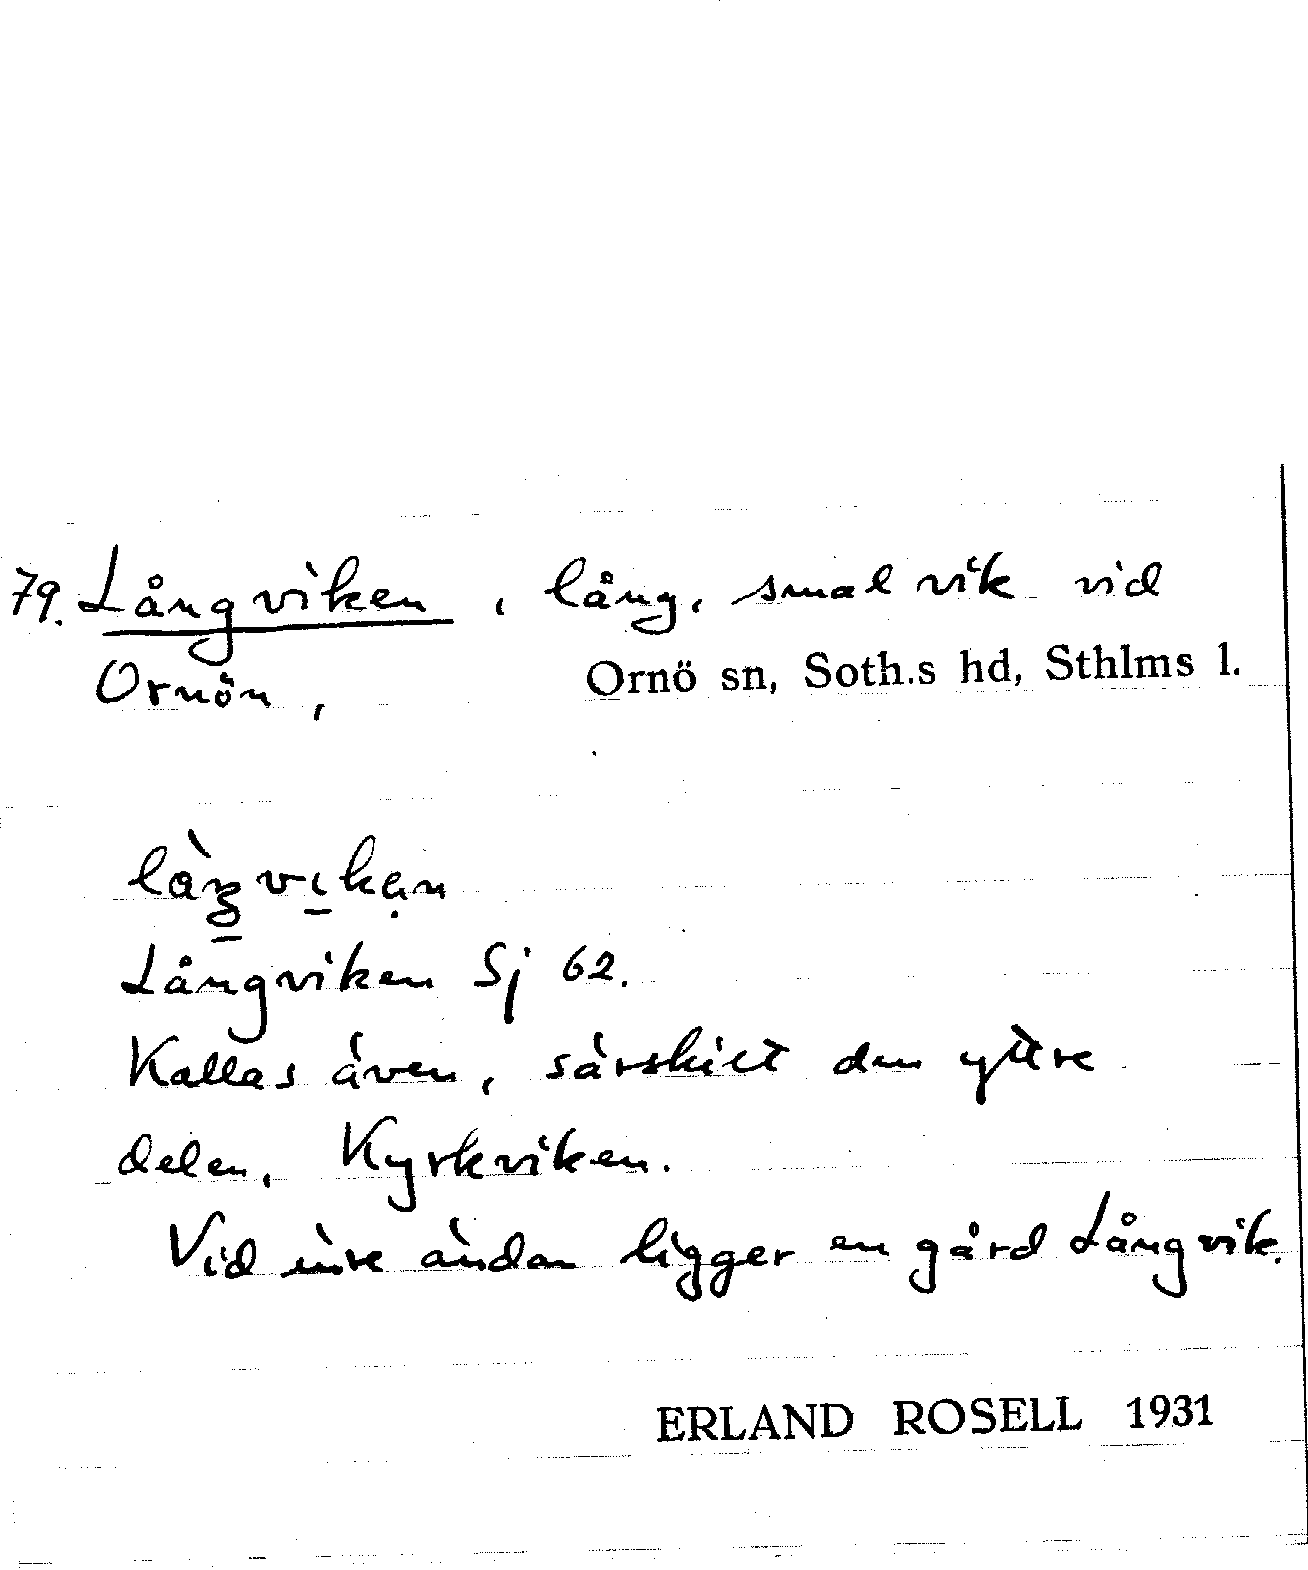 79. Långviken, lång, smal vik vid
Ornön, Ornö sn, Soth.s hd, Sthlms l.
Långviken Sj 62.
Kallas även, särskilt den yttre
delen, Kyrkviken.
Vid inre ändan ligger en gård Långvik.
ERLAND ROSELL 1931